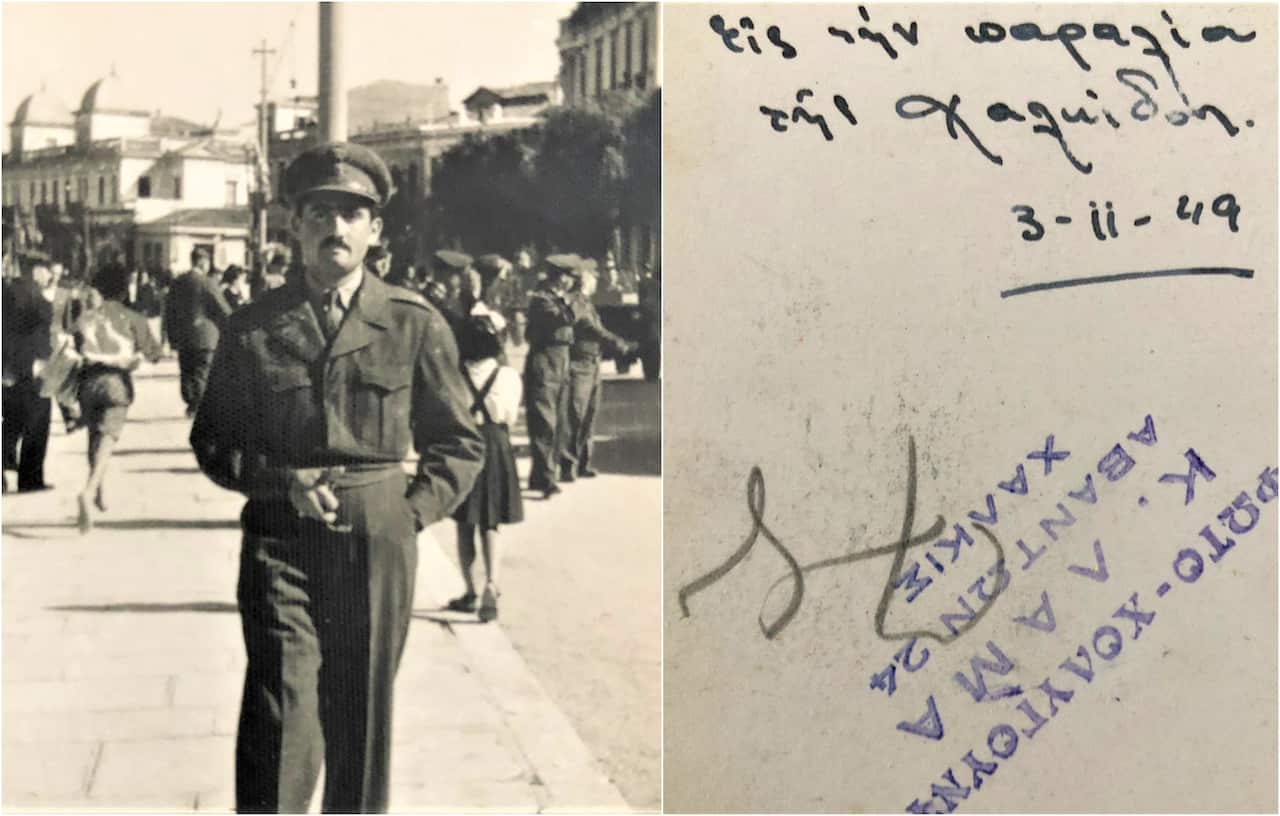 εἰς τὴν παραλία
τῆς Χαλκίδος.
3-11-49
ΦΩΤΟ-ΧΟΛΥΓΟΥΝ
Κ. ΛΑΜΑ
ΑΒΑΝΤΩΝ 24
ΧΑΛΚΙΣ